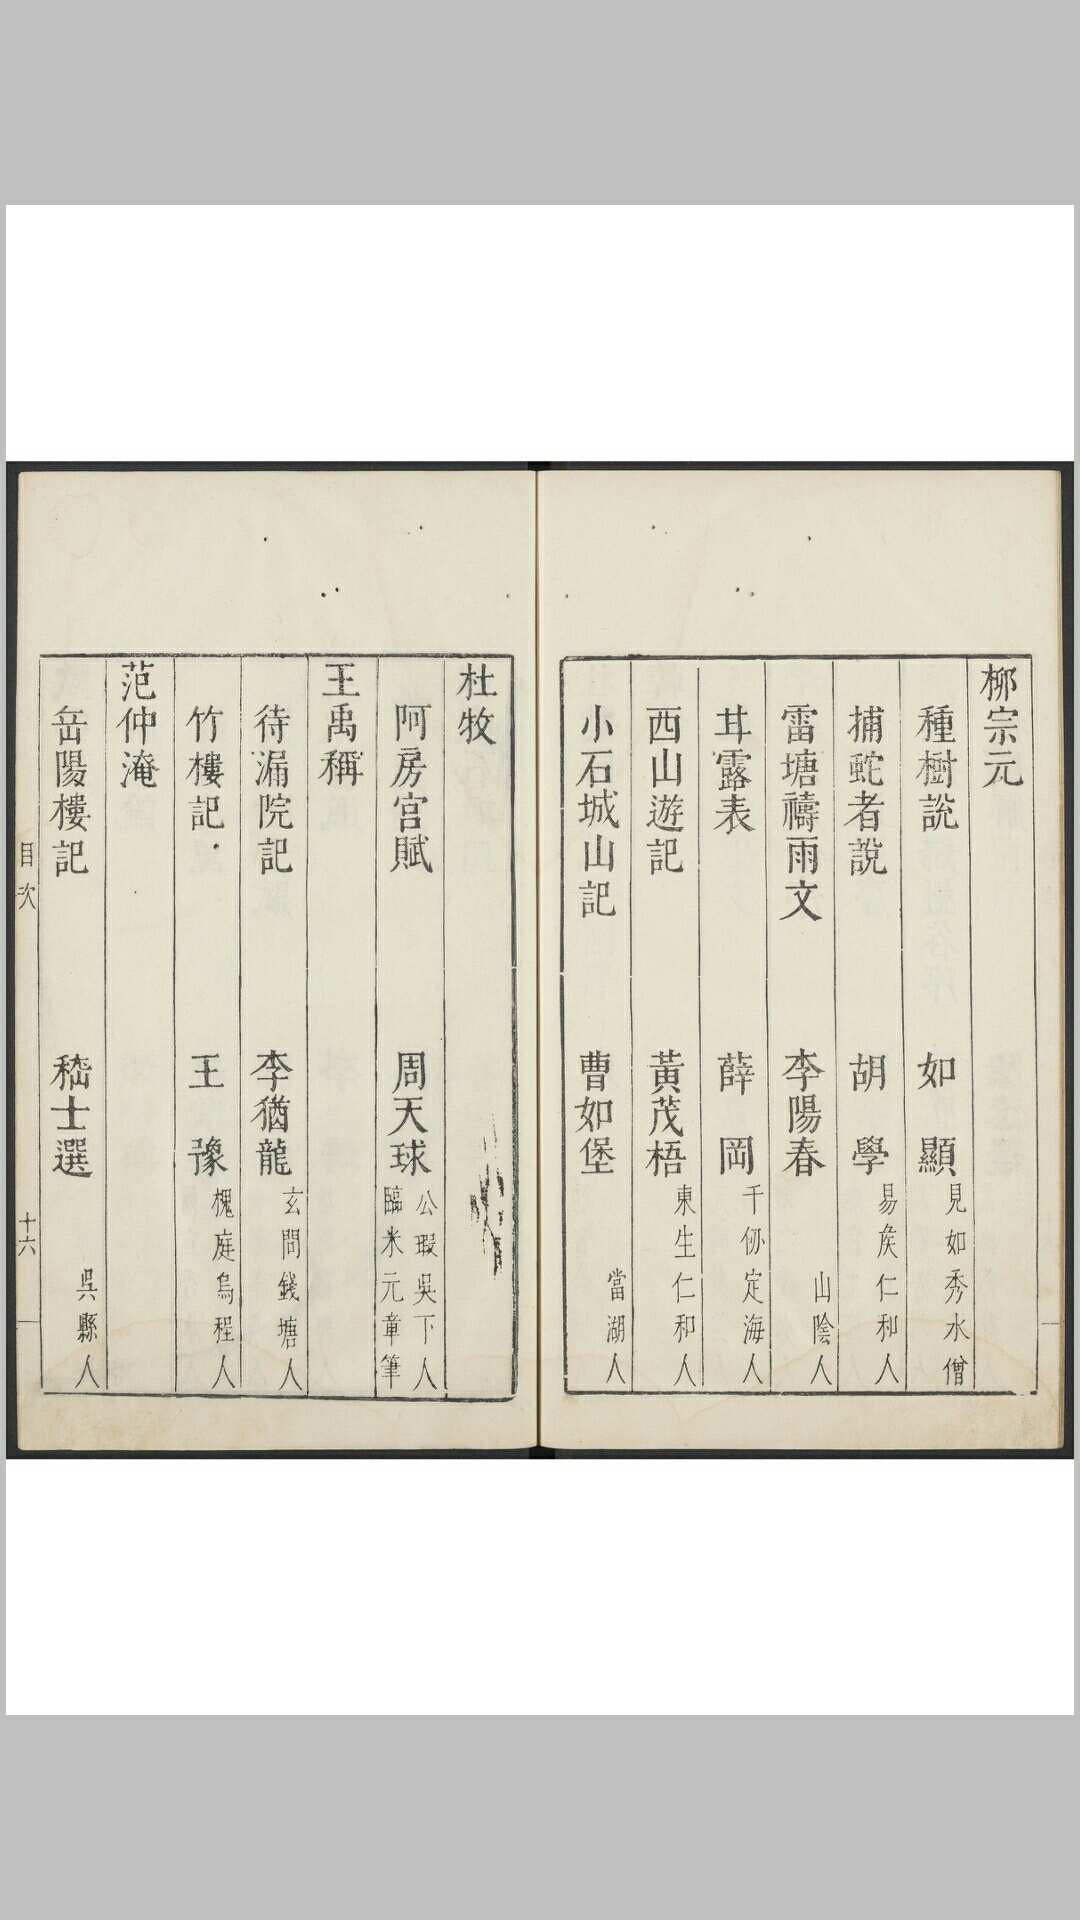 柳宗元
種樹說 如顯 見如秀水僧
捕蛇者說 胡學 易矦仁和人
雷塘禱雨文 李陽春 山陰人
甘露表 薛岡 千仞定海人
西山遊記 黃茂梧 東生仁和人
小石城山記 曹如堡 當湖人
杜牧
阿房宮賦 周天球 公瑕吳下人
臨米元章筆
王禹稱
待漏院記 李猶龍 玄問錢塘人
竹樓記 王豫 槐庭烏程人
范仲淹
岳陽樓記 嵇士選 吳縣人
目次 十六